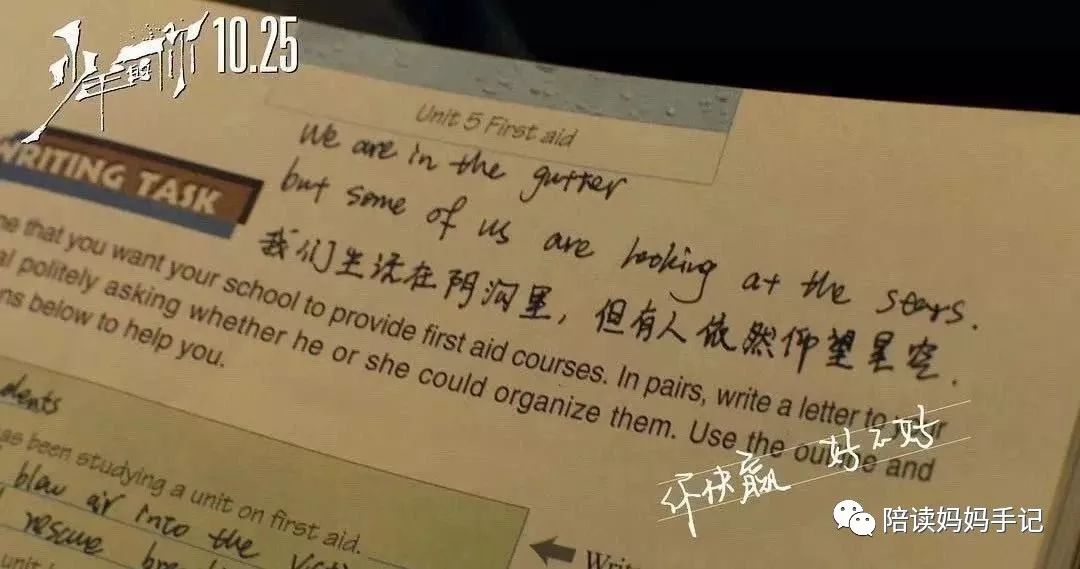 少年的你 10.25
Unit 5 First aid
We are in the gutter
WRITING TASK
but some of us are looking at the stars.
我们生活在阴沟里，但有人依然仰望星空.
ne that you want your school to provide first aid courses. In pairs, write a letter to your
al politely asking whether he or she could organize them. Use the outline and
ns below to help you.
你快赢 好不好
dents
as been studying a unit on first aid.
blow air into the victi
rescue brea
unit
Writ
陪读妈妈手记